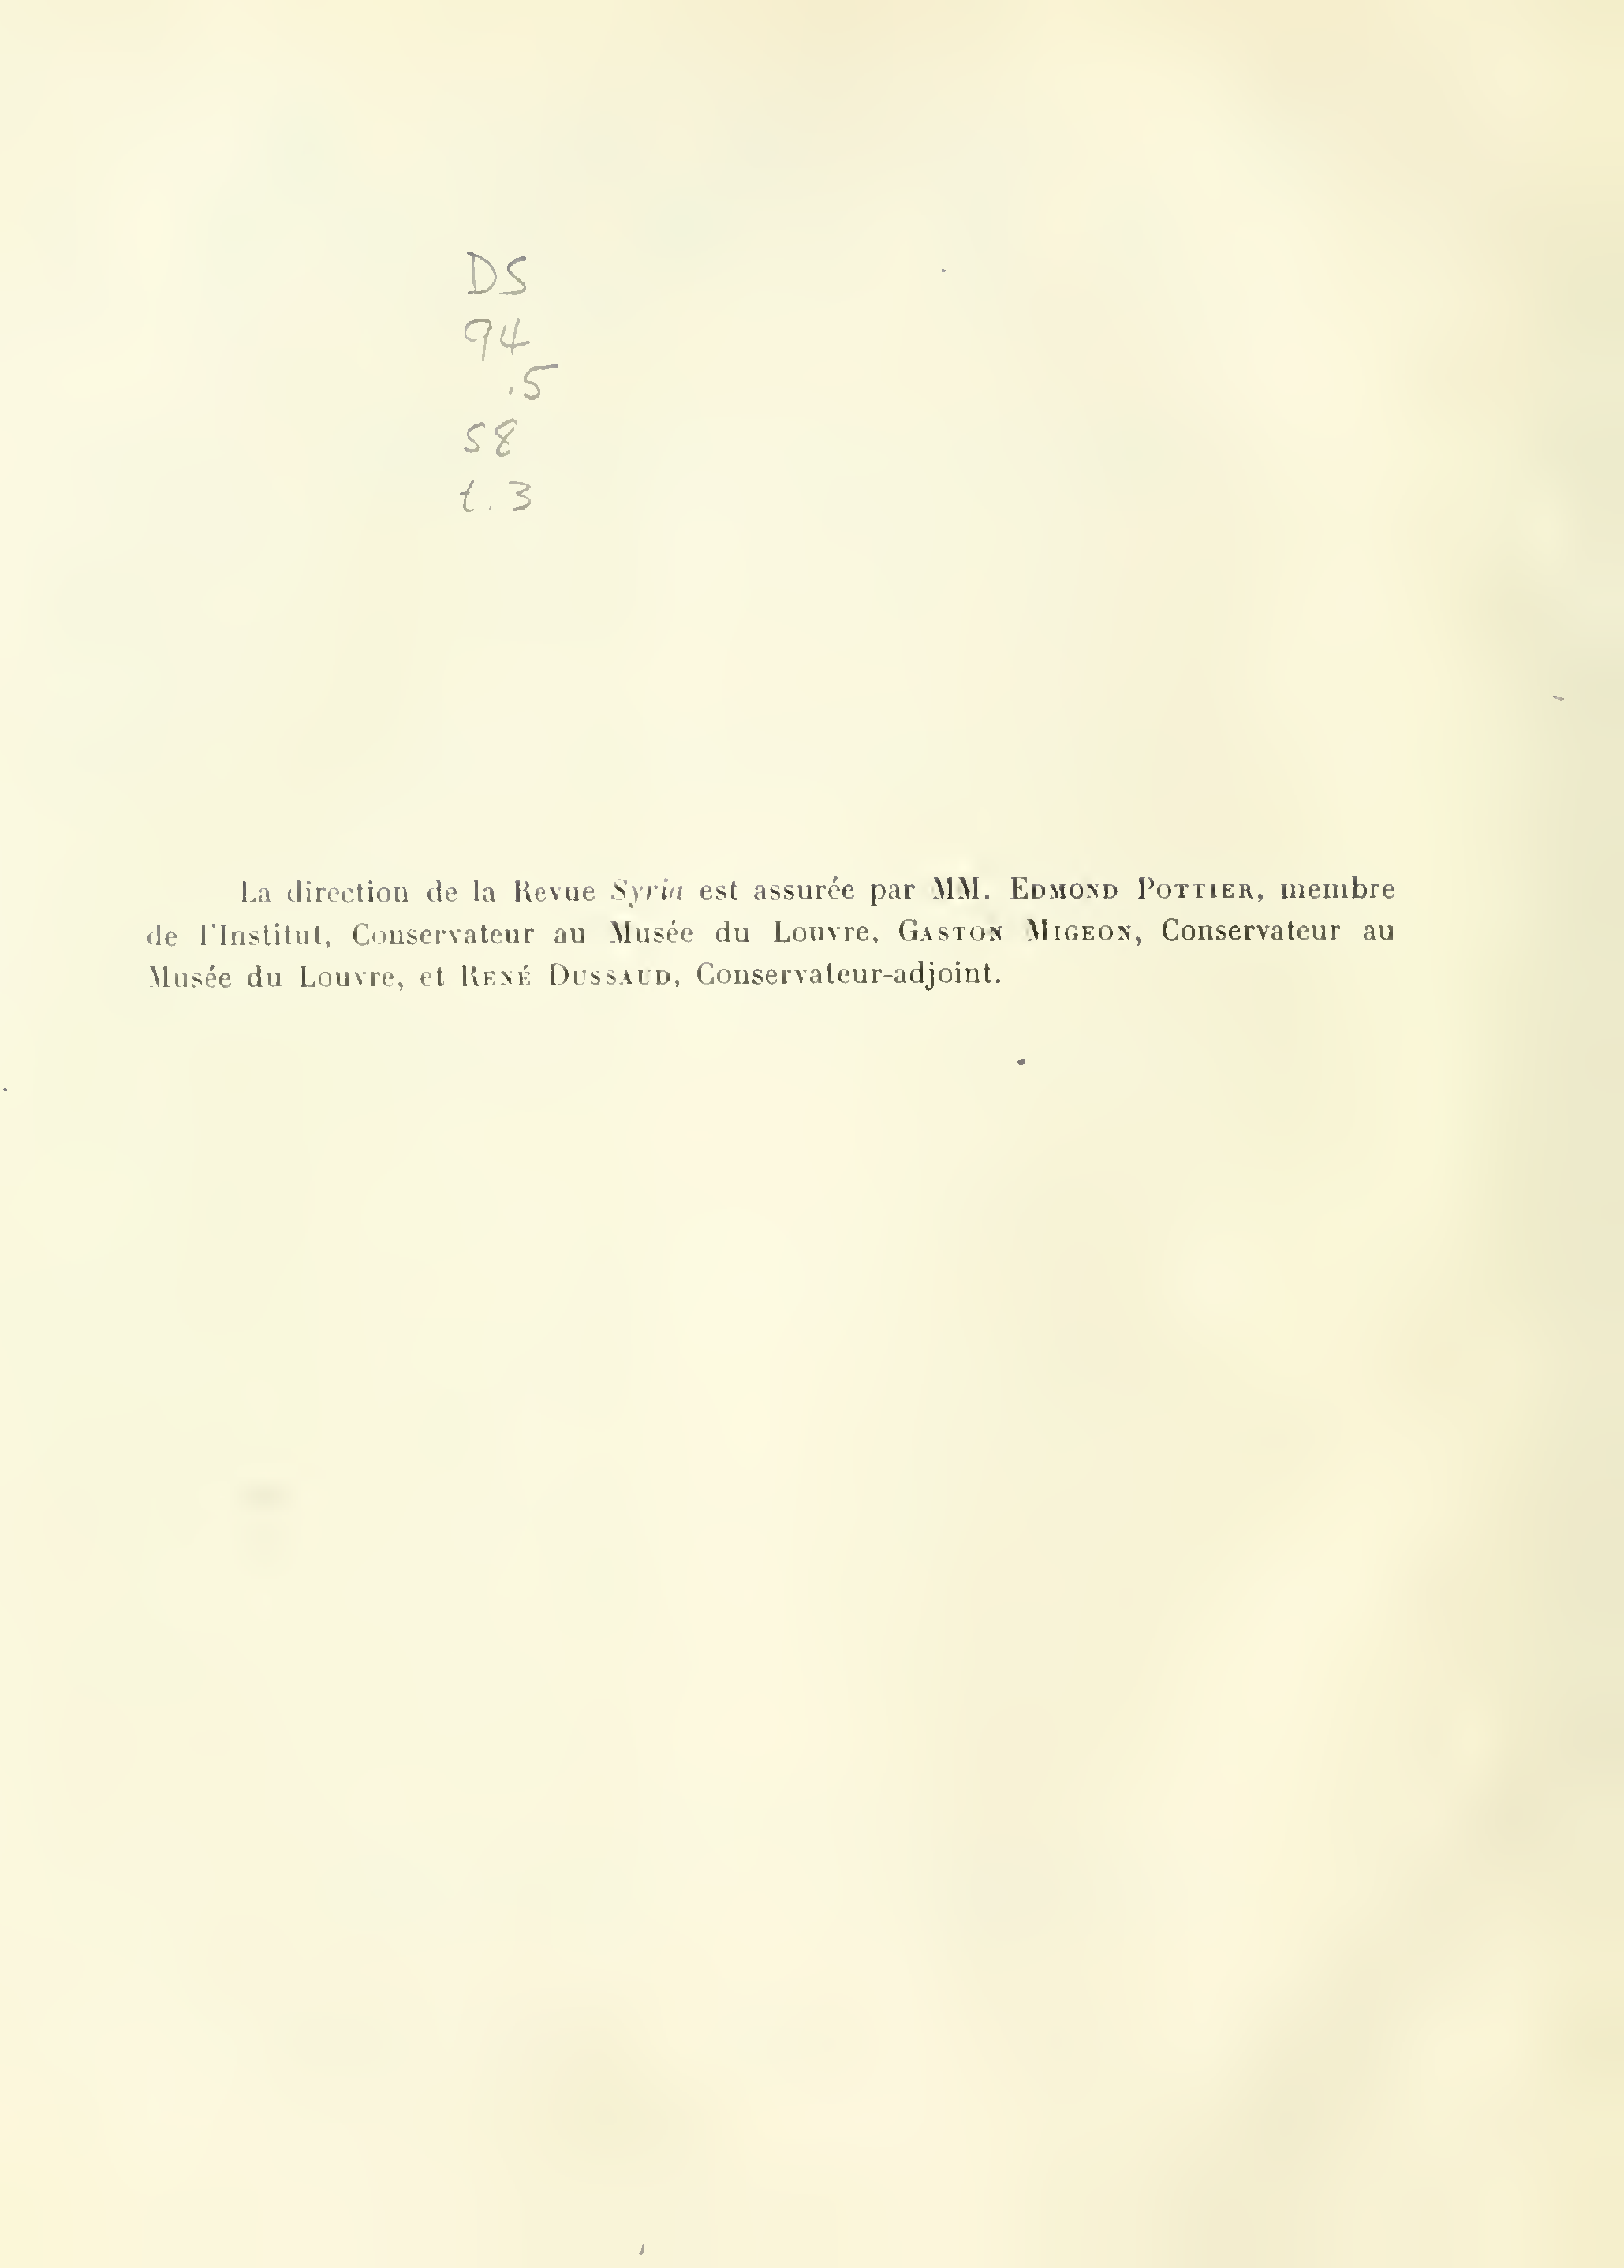 DS
94
.5
S8
t.3
La direction de la Revue Syria est assurée par MM. EDMOND POTTIER, membre
de l'Institut, Conservateur au Musée du Louvre, GASTON MIGEON, Conservateur au
Musée du Louvre, et RENÉ DUSSAUD, Conservateur-adjoint.